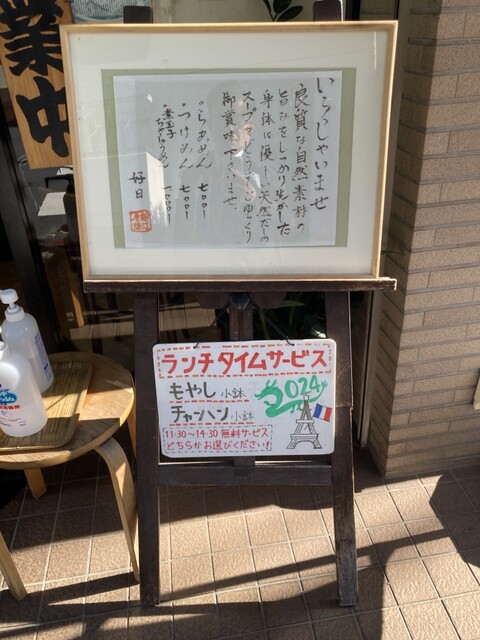 業中
いらっしゃいませ
良質な自然素材の
旨みをしっかり生かした
身体に優しい天然だしの
スープをどうぞごゆっくり
御賞味下さいませ。
・らあめん 七〇〇
・つけめん 七〇〇
・煮玉子
好日
ランチタイムサービス
もやし小鉢
チャーハン小鉢
2024
11:30〜14:30 無料サービス
どちらかお選びください!